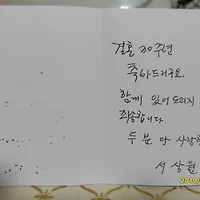 결혼 30주년
축하드리구요.
함께 있어 드리지
죄송합니다.
두 분 다 사랑
서상원
2010/